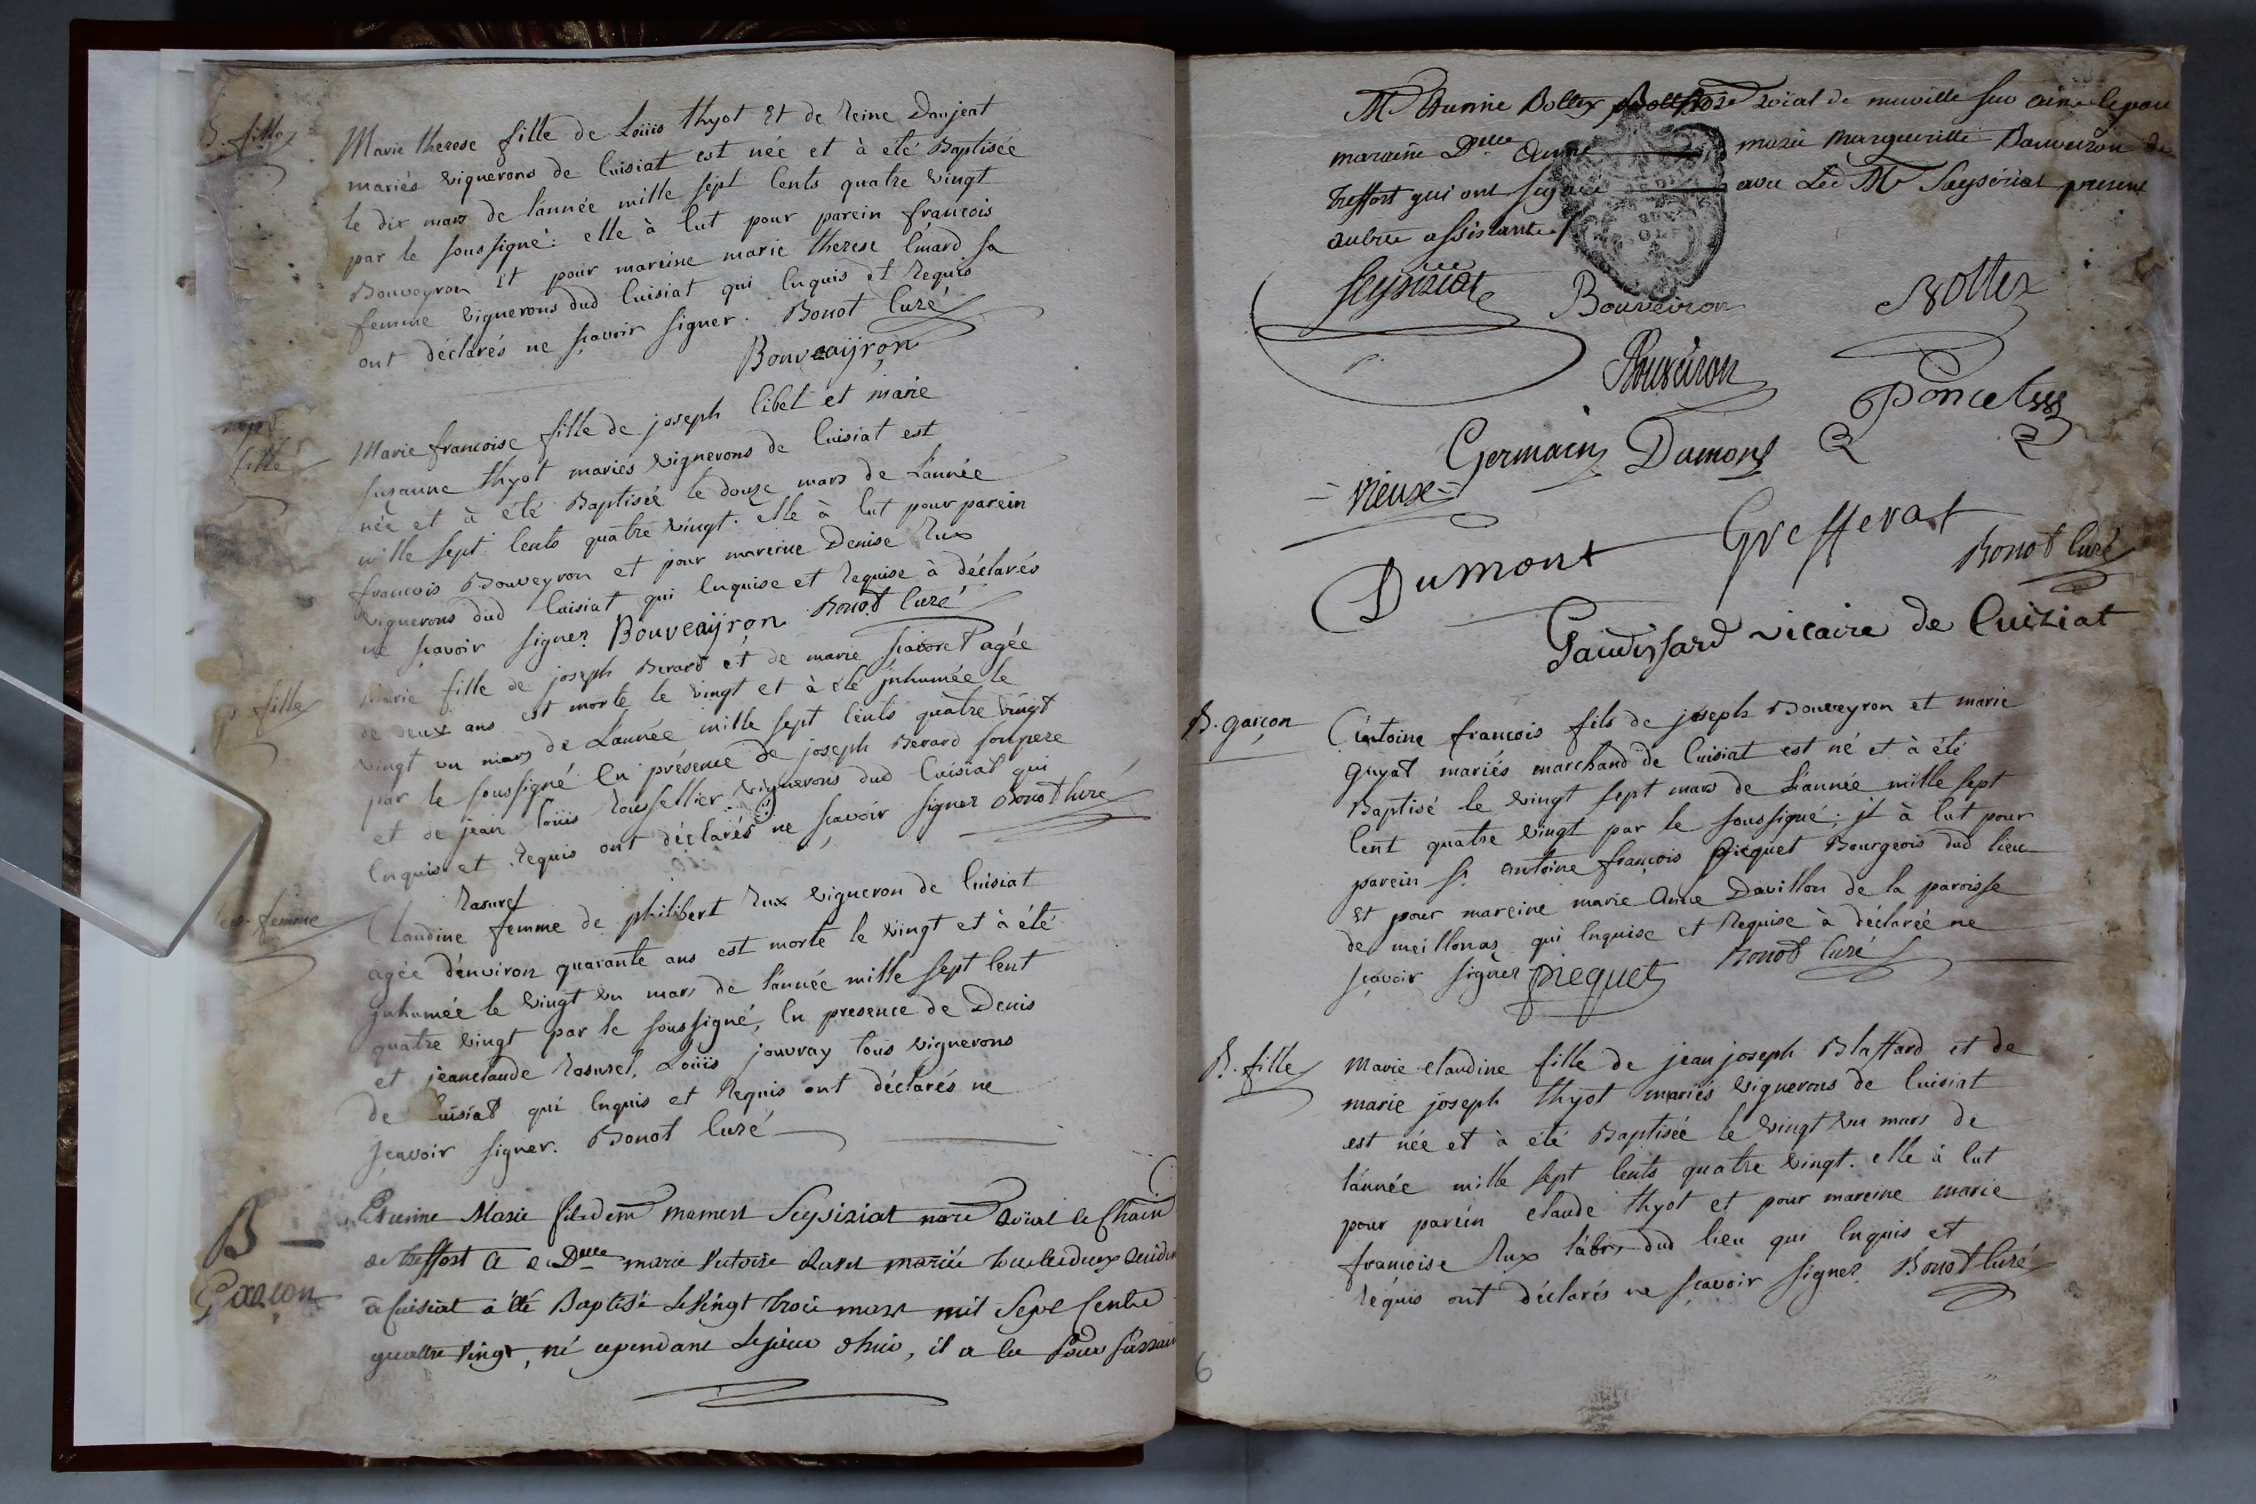 B. fille
Marie therese fille de Loüis thyot Et de Reine Danjeat
mariés vignerons de Cuisiat est née et à été Baptisée
le dix mars de l'année mille sept Cents quatre vingt
par le soussigné: elle à Eut pour parein francois
Bouveyron Et pour mareine marie therese Cunard sa
femme vignerons dud Cuisiat qui Enquis et Requis
ont déclarés ne sçavoir signer. Bonot Curé
Bouveaÿron
fille
Marie francoise fille de joseph Cibet et marie
suzanne thyot mariés vignerons de Cuisiat est
née et à été Baptisée le douze mars de L'année
mille sept Cents quatre vingt. elle à Eut pour parein
francois Bouveyron et pour mareine Denise Rux
vignerons dud Cuisiat qui Enquise et Requise à déclarés
ne sçavoir signer Bouveaÿron Bonot Curé
fille
Marie fille de joseph Berard et de marie agée
de deux ans est morte le vingt et à été jnhumée le
vingt un mars de L'année mille sept Cents quatre vingt
par le soussigné En présence de joseph Berard son pere
et de jean Loüis Roussellier vignerons dud Cuisiat qui
Enquis et Requis ont déclarés ne sçavoir signer Bonot Curé
femme
Rasurel
Claudine femme de philibert Rux vigneron de Cuisiat
agée d'environ quarante ans est morte le vingt et à été
jnhumée le vingt un mars de l'année mille sept Cent
quatre vingt par le soussigné, En presence de Denis
et jeanclaude Rasurel, Loüis jouvray tous vignerons
de Cuisiat qui Enquis et Requis ont déclarés ne
sçavoir signer. Bonot Curé
B
Garcon
Etienne Marie fils de mre mamert Seysiriat nore Roïal
de treffort Et de Dlle marie Victoire mariés
a Cuisiat a été Baptisé le vingt trois mars mil Sept Cents
quattre vingt, né cependant le jour d'hier, il a eu Pour Parrain
Mr Etienne Bottex Roïal de
maraine Dlle Anne marie Margueritte Bouveiron de
treffort qui ont signé avec Led Mr Seysiriat present
autres assistants
Seysiriat
Bouveiron
Bottex
Bouveiron
Poncet
Germain Dumons
= vieux =
Dumont
Greffevat
Bonot Curé
Gaudissard vicaire de Cuiziat
B. garçon
Antoine francois fils de joseph Bouveyron et marie
Guyat mariés marchand de Cuisiat est né et à été
Baptisé le vingt sept mars de L'année mille sept
Cent quatre vingt par le soussigné; jl à Eut pour
parein sr. antoine françois picquet Bourgeois dud lieu
Et pour mareine marie Anne Davillon de la paroisse
de meillonas qui Enquise et Requise à déclarée ne
sçavoir signer picquet Bonot Curé
B. fille
Marie claudine fille de jean joseph Blaffard et de
marie joseph thyot mariés vignerons de Cuisiat
est née et à été Baptisée le vingt un mars de
l'année mille sept Cents quatre vingt. elle à Eut
pour parein claude thyot et pour mareine marie
francoise Rux dud lieu qui Enquis et
Réquis ont déclarés ne sçavoir signer Bonot Curé
6